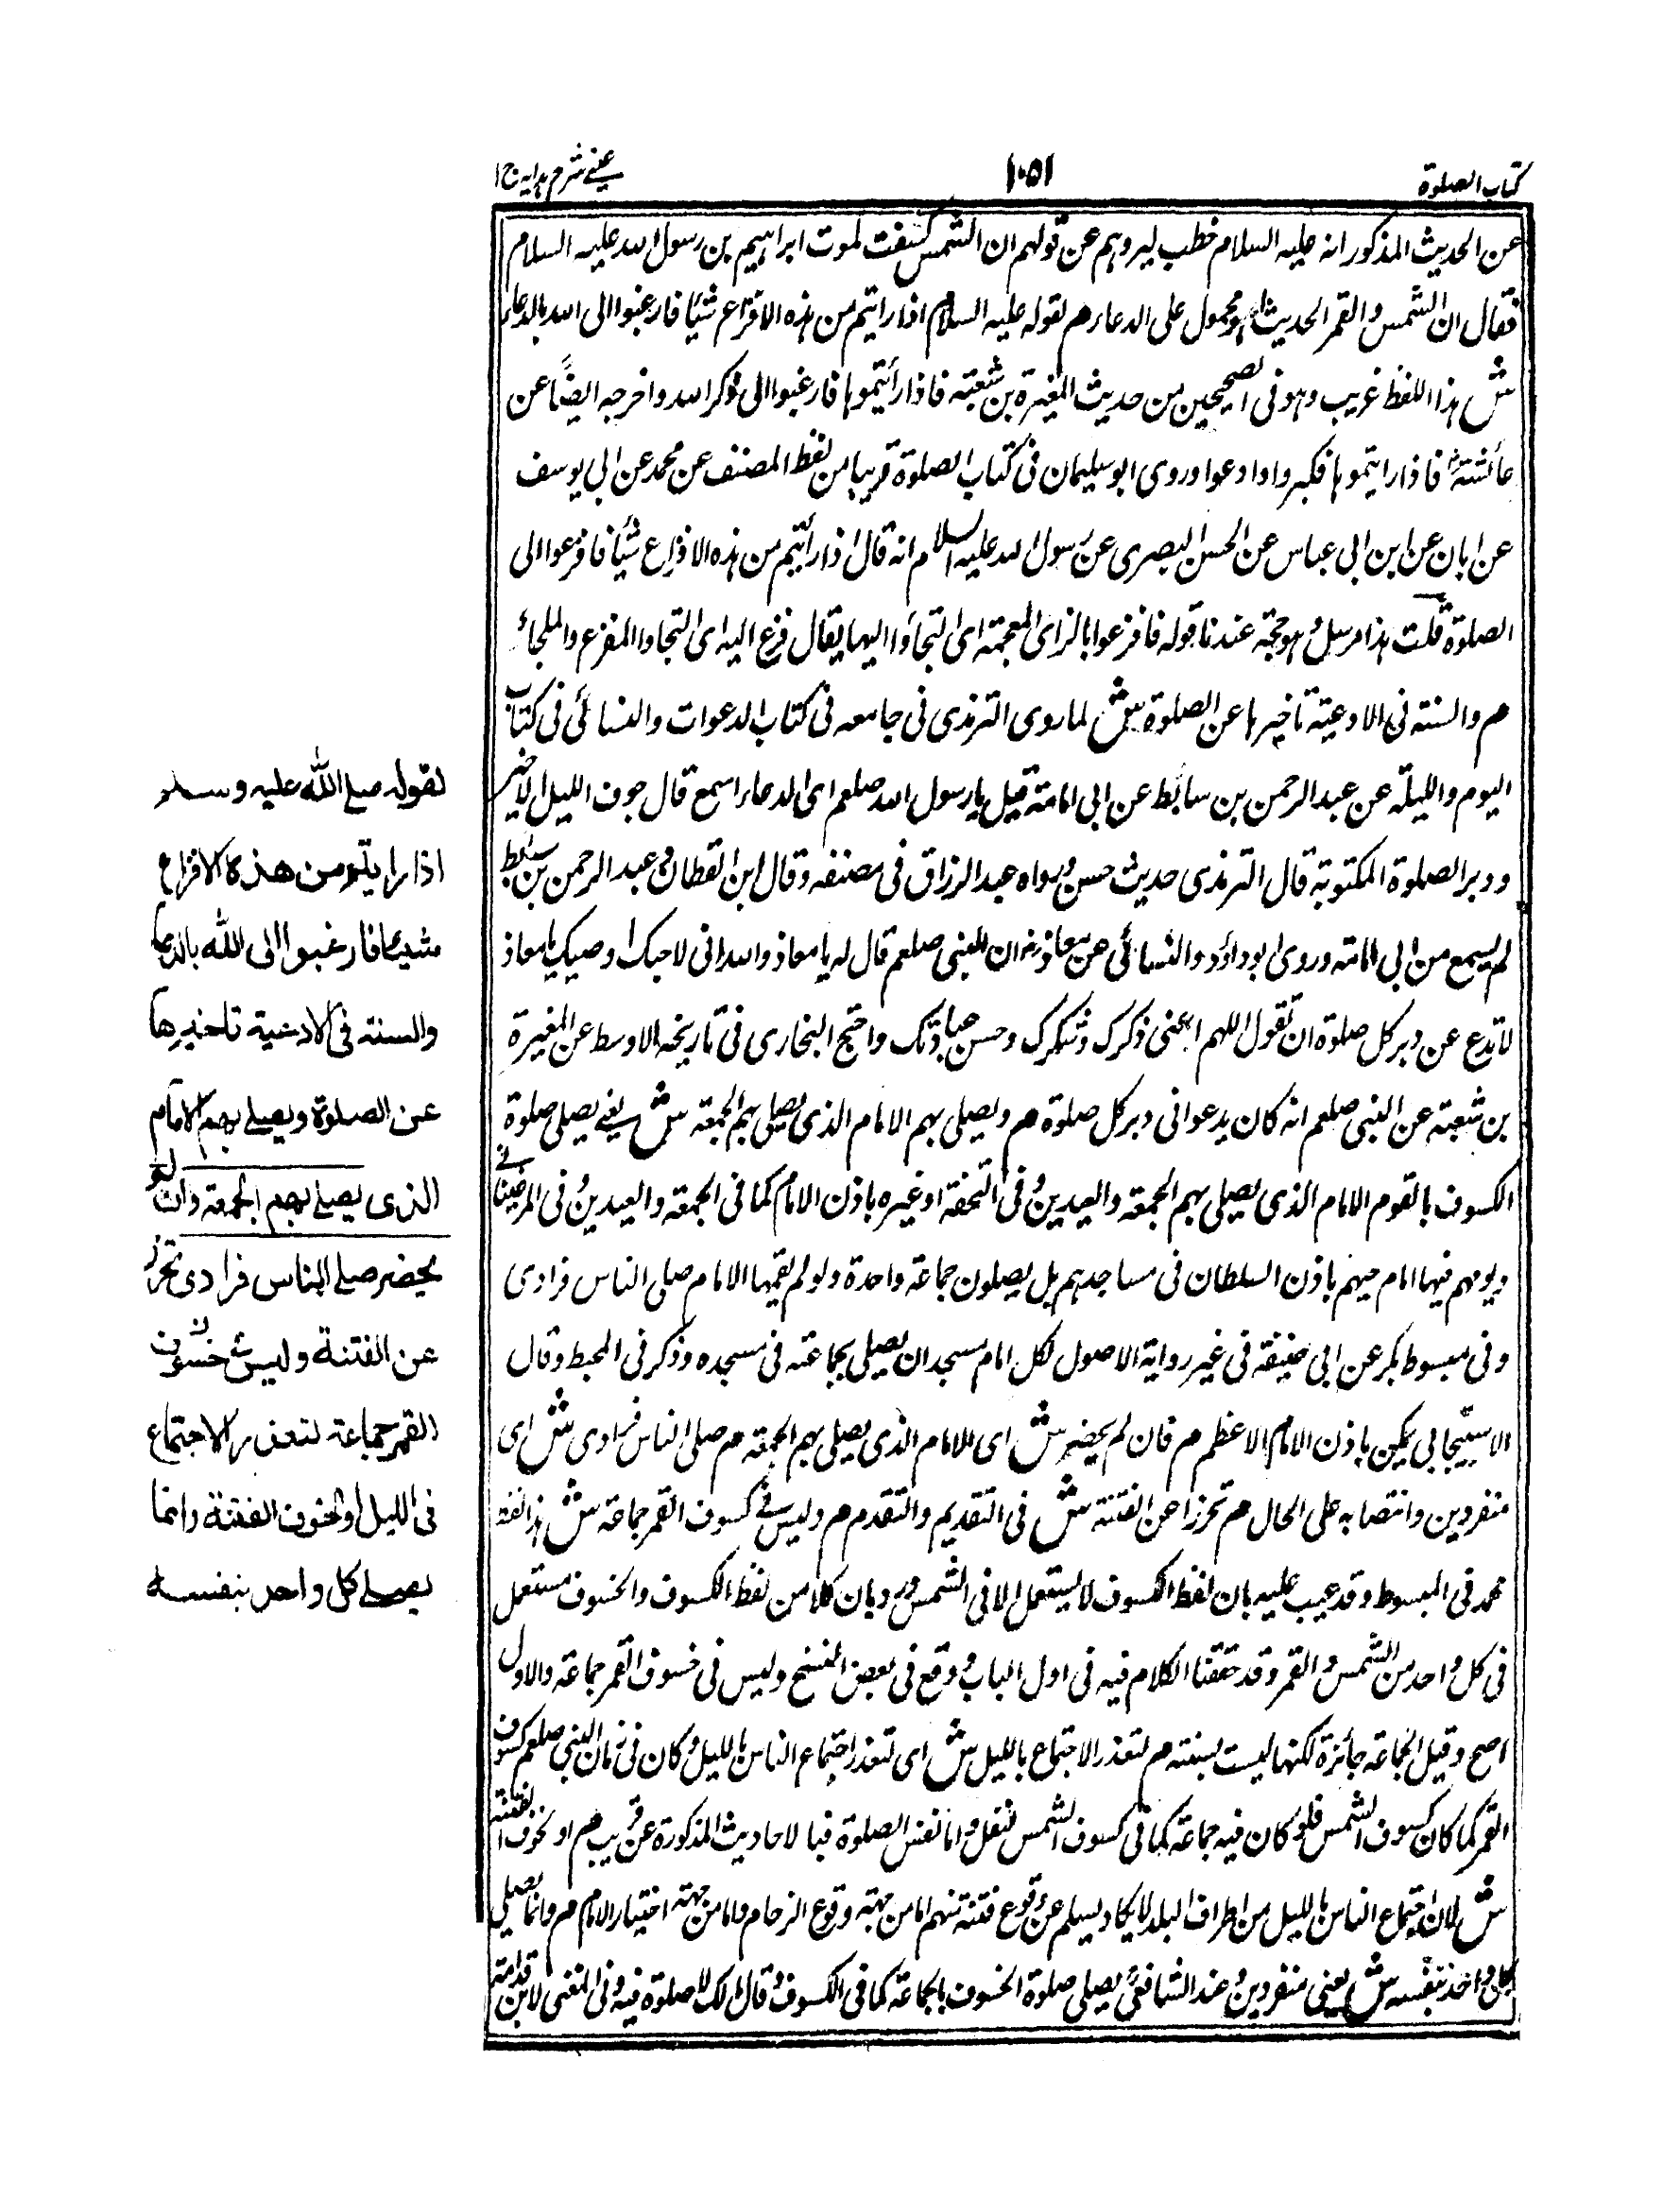 كتاب الصلوة
١٠٥١
عینے شرح ہدایہ ج ١
عن الحديث المذكور انه عليه السلام خطب ليردہم عن قولهم ان الشمس كسفت لموت ابراہیم بن رسول الله عليه السلام
فقال ان الشمس والقمر الحديث محمول على الدعاء م لقوله عليه السلام اذا رايتم من ہذہ الافزاع شيئا فارغبوا الى الله بالدعاء
ش ہذا اللفظ غريب وہو فى الصحيحين من حديث المغيرة بن شعبة فاذا رأيتموہا فارغبوا الى ذكر الله واخرجہ ايضًا عن
عائشة فاذا رايتموہا فكبروا وادعوا وروى ابو سليمان فى كتاب الصلوة قريبا من لفظ المصنف عن محمد عن ابى يوسف
عن ابان عن ابن ابى عباس عن الحسن البصرى عن رسول الله عليه السلام انه قال اذا رأيتم من ہذہ الافزاع شيئا فافزعوا الى
الصلوة قلت ہذا مرسل وہو حجة عندنا قوله فافزعوا بالزاى المعجمة اى التجأوا اليہا يقال فزع اليہ اى التجا والمفزع والملجاء
م والسنة فى الادعية تاخيرہا عن الصلوة ش لما روى الترمذى فى جامعہ فى كتاب الدعوات والنسائى فى كتاب
اليوم والليلة عن عبد الرحمن بن سابط عن ابى امامة قيل يا رسول الله صلعم اى الدعاء اسمع قال جوف الليل الاخير
ودبر الصلوة المكتوبة قال الترمذى حديث حسن ورواہ عبد الرزاق فى مصنفہ وقال ابن القطان وعبد الرحمن بن سابط
لم يسمع من ابى امامة وروى ابو داؤد والنسائى عن معاذ ان النبى صلعم قال لہ يا معاذ والله انى لاحبك اوصيك يا معاذ
لا تدع عن دبر كل صلوة ان تقول اللهم اعنى ذكرك وشكرك وحسن عبادتك واحتج البخارى فى تاريخہ الاوسط عن المغيرة
بن شعبة عن النبى صلعم انه كان يدعو فى دبر كل صلوة م ويصلى بہم الامام الذى يصلى بہم الجمعة ش يعنے يصلى صلوة
الكسوف بالقوم الامام الذى يصلى بہم الجمعة والعيدين وفى التحفة او غيرہ باذن الامام كما فى الجمعة والعيدين وفى المرغينانے
ويومہم فيہا امام حيہم باذن السلطان فى مساجدہم بل يصلون جماعة واحدة ولو لم يقمہا الامام صلى الناس فرادى
وفى مبسوط بكر عن ابى حنيفة فى غير رواية الاصول لكل امام مسجد ان يصلى بجماعتہ فى مسجدہ وذكر فى المحيط وقال
الاسبيجابى يمكن باذن الامام الاعظم م فان لم يحضر ش اى الامام الذى يصلى بہم الجمعة م صلى الناس فرادى ش اى
منفردين وانتصابہ على الحال م تحرزا عن الفتنة ش فى التقديم والتقدم م وليس فے كسوف القمر جماعة ش ہذا لفظ
محمد فى المبسوط وقد عيب عليہ بان لفظ الكسوف لا يستعمل الا فى الشمس ورد بان كلا من لفظ الكسوف والخسوف مستعمل
فى كل واحد من الشمس والقمر وقد حققنا الكلام فيہ فى اول الباب ووقع فى بعض النسخ وليس فى خسوف القمر جماعة والاول
اصح وقيل الجماعة جائزة لكنہا ليست بسنة م لتعذر الاجتماع بالليل ش اى لتعذر اجتماع الناس بالليل وكان فى زمان النبى صلعم كسوف
القمر كما كان كسوف الشمس فلو كان فيہ جماعة كما فى كسوف الشمس لنقل واما نفس الصلوة فبالاحاديث المذكورة عن قريب م او لخوف الفتنة
ش لان اجتماع الناس بالليل من اطراف البلد لا يكاد يسلم عن وقوع فتنة بينہم اما من جہة وقوع الزحام واما من جہة اختيار الامام م وانما يصلى
كل واحد بنفسہ ش يعنى منفردين وعند الشافعى يصلى صلوة الخسوف بالجماعة كما فى الكسوف وقال مالك لا صلوة فيہ وفى المغنى لابن قدامة
لقوله صلے الله عليه وسلم
اذا رايتم من هذه الافزاع
شيئا فارغبوا الى الله بالدعا
والسنة فى الادعية تاخيرها
عن الصلوة ويصلے بهم الامام
الذى يصلے بهم الجمعة وان لم
يحضر صلے الناس فرادى تحرزا
عن الفتنة وليس فى خسوف
القمر جماعة لتعذر الاجتماع
فى الليل او لخوف الفتنة وانما
يصلے كل واحد بنفسه